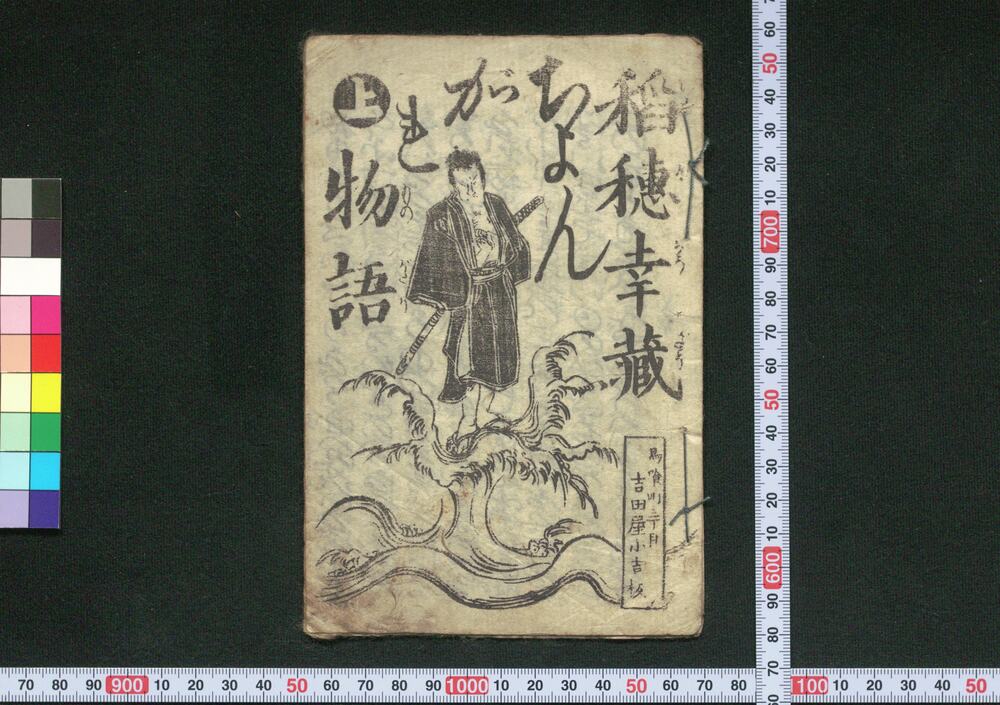 稲穂幸蔵
ちよん
がれ
物語
ものがたり
上
馬喰町三丁目
吉田屋小吉板
70 80 90 900 10 20 30 40 50 60 70 80 90 1000 10 20 30 40 50 60 70 80 100 10 20 30 40 50
60 50 40 30 20 10 700 90 80 70 60 50 40 30 20 10 600 90 80 70 60